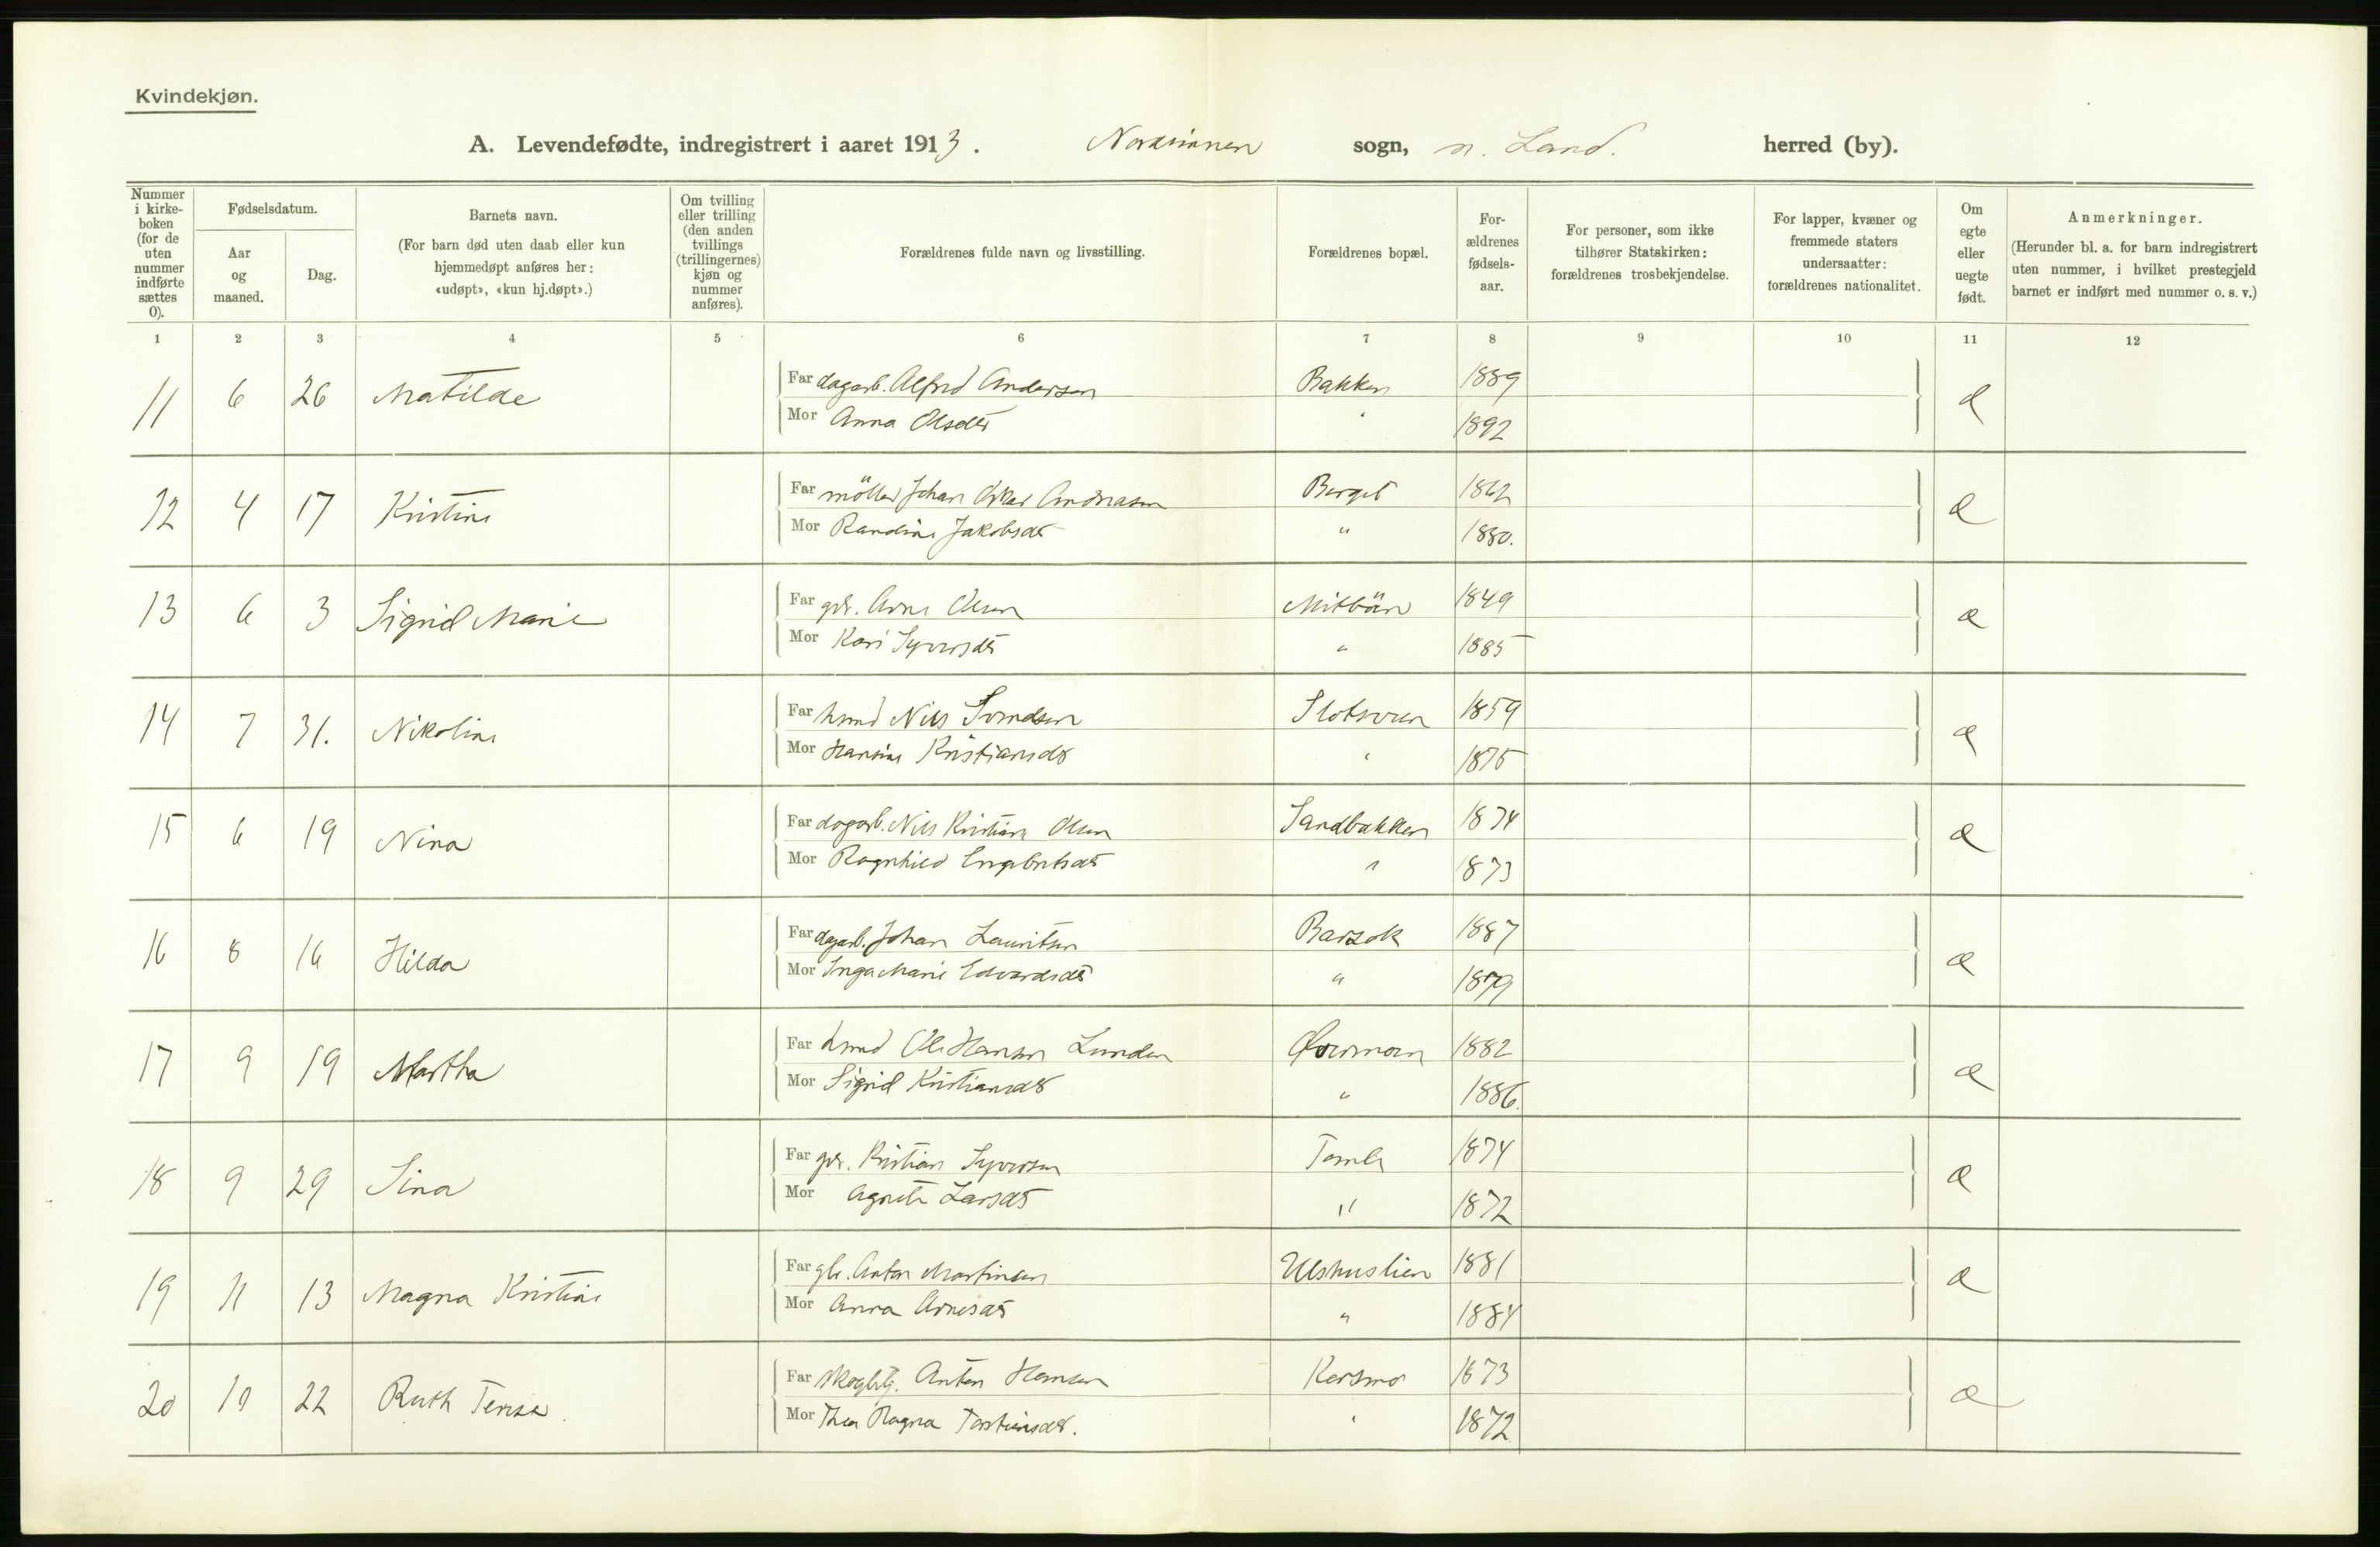 Kvindekjøn.
A. Levendefødte, indregistrert i aaret 1913. Nordsinnen sogn, n. Land. herred (by).
Nummer i kirke-boken (for de uten nummer indførte sættes 0).
Fødselsdatum.
Aar og maaned.
Dag.
Barnets navn.
(For barn død uten daab eller kun hjemmedøpt anføres her: «udøpt», «kun hj.døpt».)
Om tvilling eller trilling (den anden tvillings (trillingernes) kjøn og nummer anføres).
Forældrenes fulde navn og livsstilling.
Forældrenes bopæl.
For-ældrenes fødsels-aar.
For personer, som ikke tilhører Statskirken: forældrenes trosbekjendelse.
For lapper, kvæner og fremmede staters undersaatter: forældrenes nationalitet.
Om egte eller uegte født.
Anmerkninger.
(Herunder bl. a. for barn indregistrert uten nummer, i hvilket prestegjeld barnet er indført med nummer o. s. v.)
1 2 3 4 5 6 7 8 9 10 11 12
11 6 26 Matilde Far dagarb. Alfred Andersen Bakken 1889
Mor Anna Olsdtr " 1892
12 4 17 Kristine Far möller Johan Oskar Andreasen Berget 1862
Mor Randine Jakobsdtr " 1880.
13 6 3 Sigrid Marie Far gdr. Arne Olsen Mitbön 1849
Mor Kari Syversdtr " 1885
14 7 31. Nikoline Far hmd Nils Svendsen 1859
Mor Hansine Kristiansdtr " 1875
15 6 19 Nina Far dagarb. Nils Kristian Olsen Sandbakken 1874
Mor Ragnhild Engebretsdtr " 1873
16 8 16 Hilda Far dagarb. Johan Lauritsen Barsok 1887
Mor Inga Marie Edvardsdtr " 1879
17 9 19 Martha Far hmd Ole Hansen Lunden 1882
Mor Sigrid Kristiansdtr " 1886.
18 9 29 Sina Far gdr. Kristian Syversen Tomle 1874
Mor Agnete Larsdtr " 1872
19 11 13 Magna Kristine Far gbr. Anton Martinsen Ulshuslien 1881
Mor Anna Arnesdtr " 1884
20 10 22 Ruth Tensa Far Anton Hansen Kersmo 1873
Mor Thea Ragna Torstensdtr. " 1872